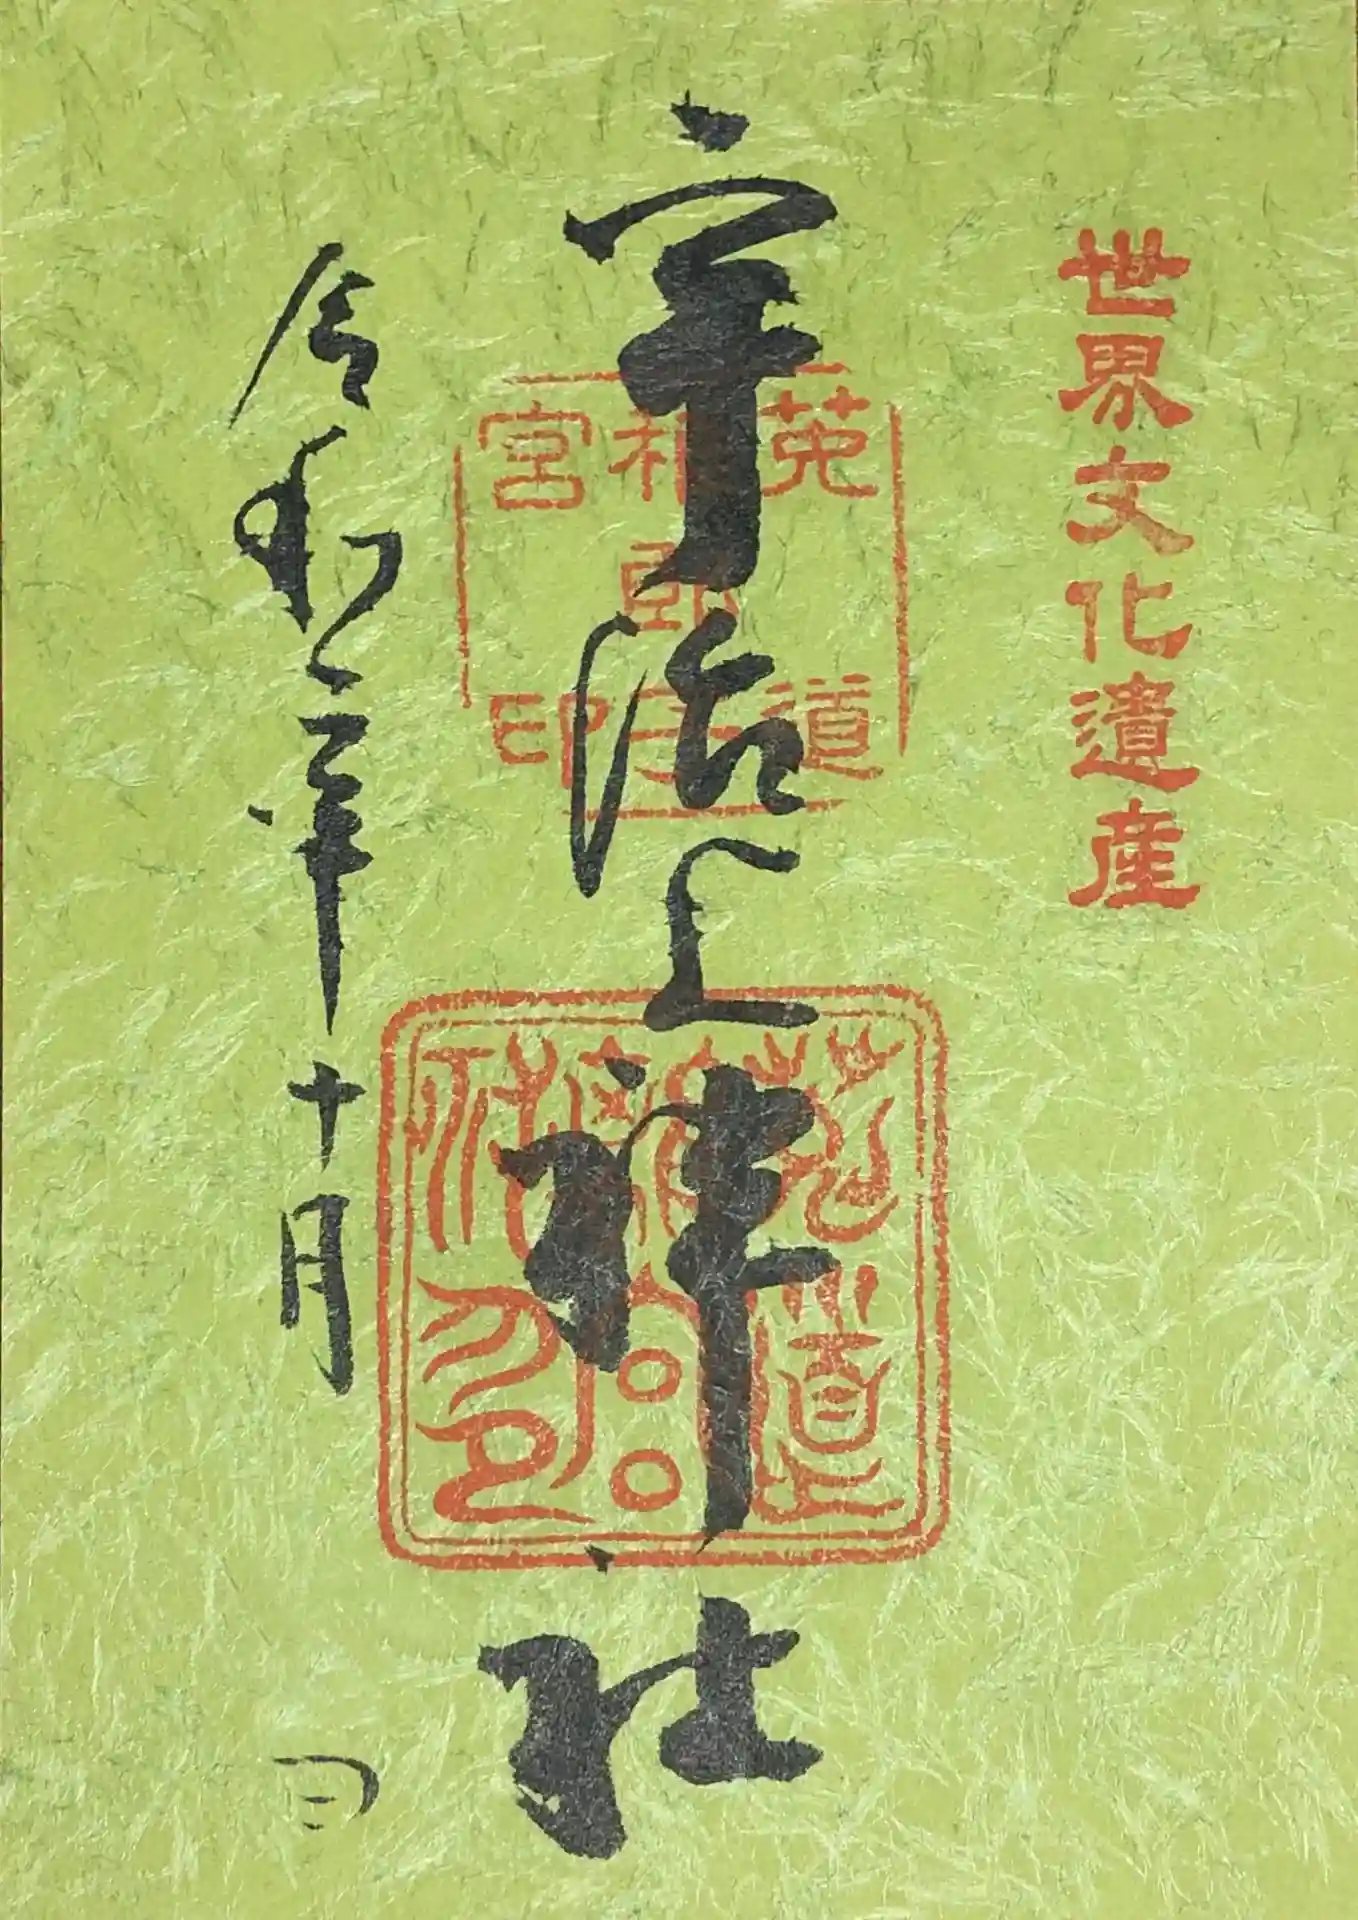 世界文化遺産
宇治上神社
菟道
稚郎子
宮印
菟道
離宮
社印
令和二年十月 日